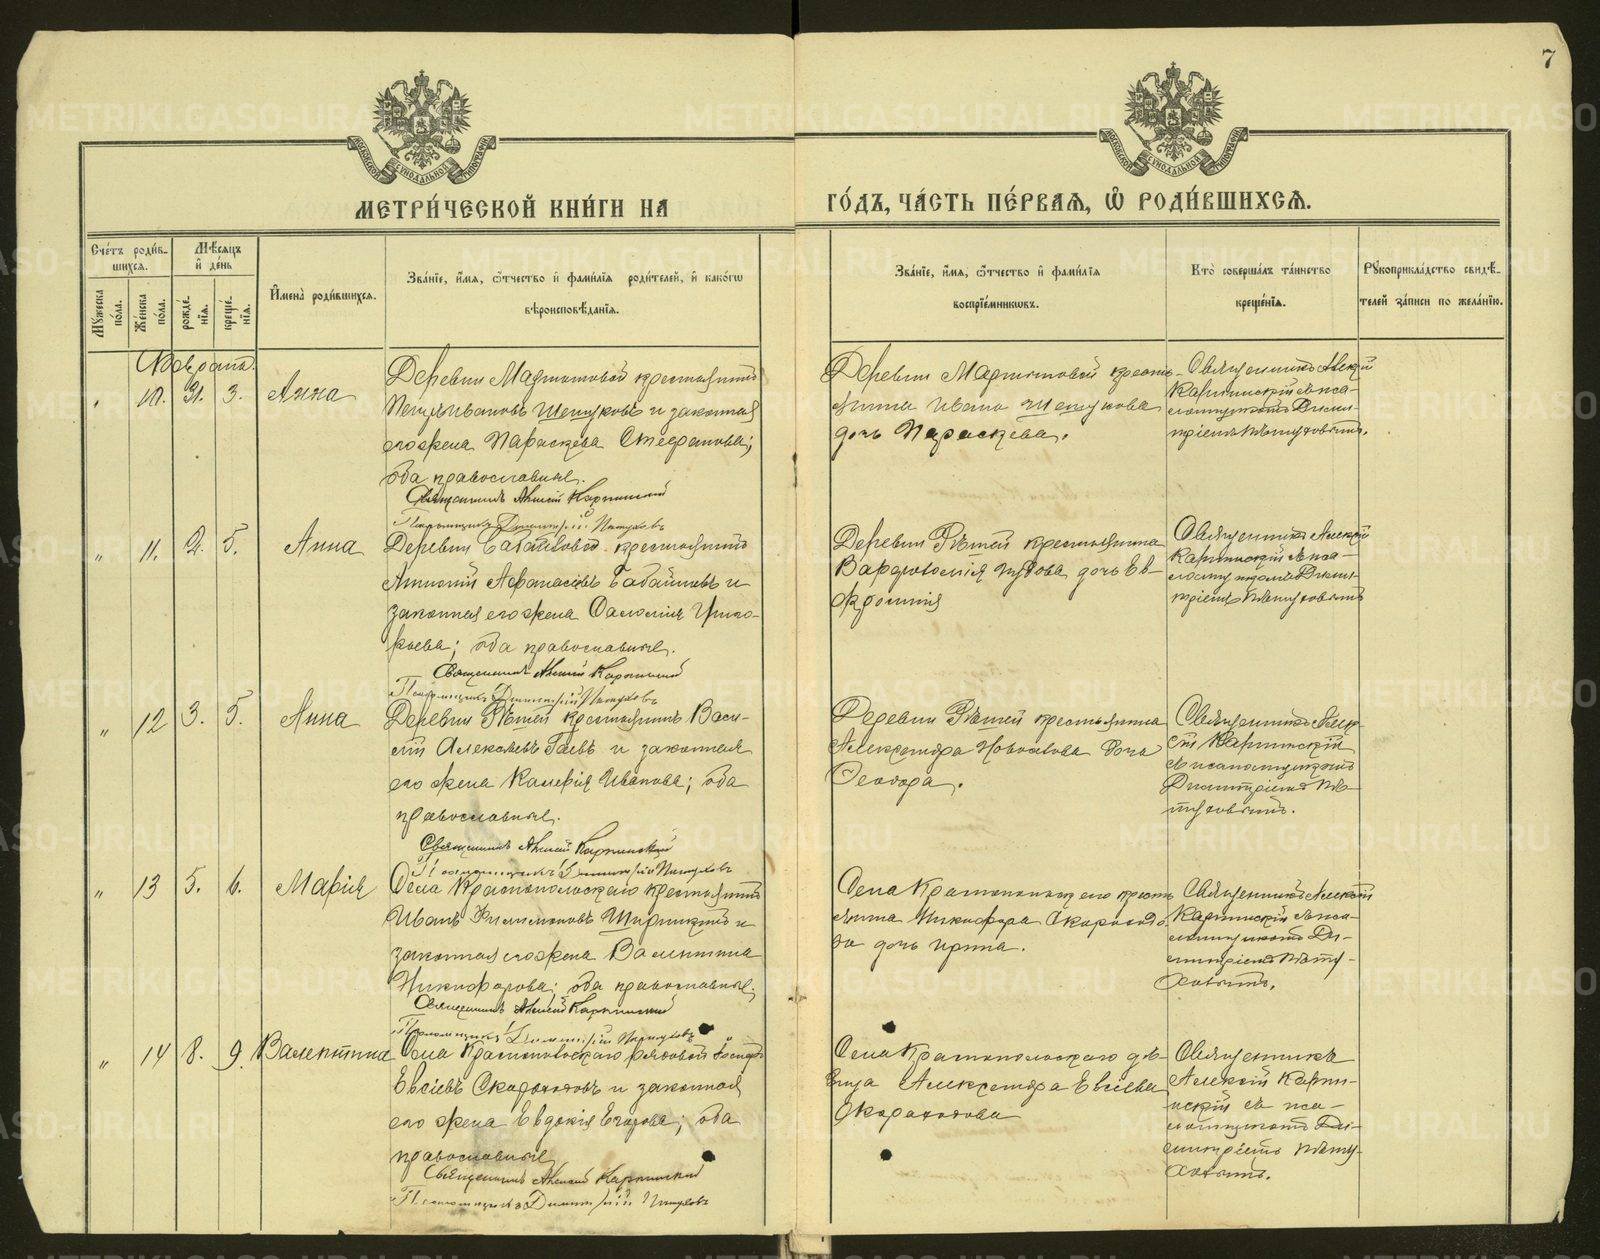 7
МОСКОВСКОЙ СѴНОДАЛЬНОЙ ТИПОГРАФІИ
МОСКОВСКОЙ СѴНОДАЛЬНОЙ ТИПОГРАФІИ
МЕТРИ́ЧЕСКОЙ КНИ́ГИ НА ГО́ДЪ, ЧА́СТЬ ПЕ́РВАЯ, Ѡ҆ РОДИ́ВШИХСЯ.
Сче́тъ роди́в-
шихся.
Мѣ́сяцъ
и҆ де́нь
Мꙋ́жеска по́ла.
Же́нска по́ла.
рожде́-
нїя.
креще́-
нїя.
И҆мена̀ роди́вшихся.
Зва́нїе, и҆́мя, ѻ҆́тчество и҆ фами́лїя роди́телей, и҆ како́гѡ
вѣроисповѣ́данїя.
Зва́нїе, и҆́мя, ѻ҆́тчество и҆ фами́лїя
воспрїе́мникѡвъ.
Кто̀ соверша́лъ та́инство
креще́нїя.
Рꙋкоприкла́дство свидѣ́-
телей за́писи по жела́нїю.
10. 31. 3. Анна
Деревни крестьянинъ
Ивановъ и законная
его жена Параскева Стефанова;
оба православные.
Священникъ Алексій Карпинскій
Псаломщикъ Димитрій Пѣтуховъ
Деревни кресть-
янина Ивана
дочь Параскева.
Священникъ Алексій
Карпинскій съ пса-
ломщикомъ Дими-
тріемъ Пѣтуховымъ.
„ 11. 2. 5. Анна
Деревни крестьянинъ
Афанасіевъ и
законная его жена
; оба православные.
Священникъ Алексій Карпинскій
Псаломщикъ Димитрій Пѣтуховъ
Деревни Рѣшей крестьянина
Варфоломія дочь Ев-
фросинія
Священникъ Алексій
Карпинскій съ пса-
ломщикомъ Дими-
тріемъ Пѣтуховымъ
„ 12 3. 5. Анна
Деревни Рѣшей крестьянинъ Васи-
лій Алексѣевъ и законная
его жена Валерія Иванова; оба
православные.
Священникъ Алексій Карпинскій
Псаломщикъ Димитрій Пѣтуховъ
Деревни Рѣшей крестьянина
Александра дочь
Феодора.
Священникъ Алек-
сій Карпинскій
съ псаломщикомъ
Димитріемъ Пѣ-
туховымъ.
„ 13 5. 6. Марія
Села Краснопольскаго крестьянинъ
Иванъ Филимоновъ и
законная его жена Валентина
Никифорова; оба православные;
Священникъ Алексій Карпинскій
Псаломщикъ Димитрій Пѣтуховъ
Села Краснопольскаго кресть-
янина Никифора Скороходо-
ва дочь Ирина.
Священникъ Алексій
Карпинскій съ пса-
ломщикомъ Ди-
митріемъ Пѣту-
ховымъ.
„ 14 8. 9. Валентина
Села Краснопольскаго рядовой
Евсіевъ Скороходовъ и законная
его жена Евдокія Егорова; оба
православные
Священникъ Алексій Карпинскій
Псаломщикъ Димитрій Пѣтуховъ
Села Краснопольскаго дѣ-
вица Александра Евсіева
Скороходова
Священникъ
Алексій Карпи-
нскій съ пса-
ломщикомъ Ди-
митріемъ Пѣту-
ховымъ.
METRIKI.GASO-URAL.RU